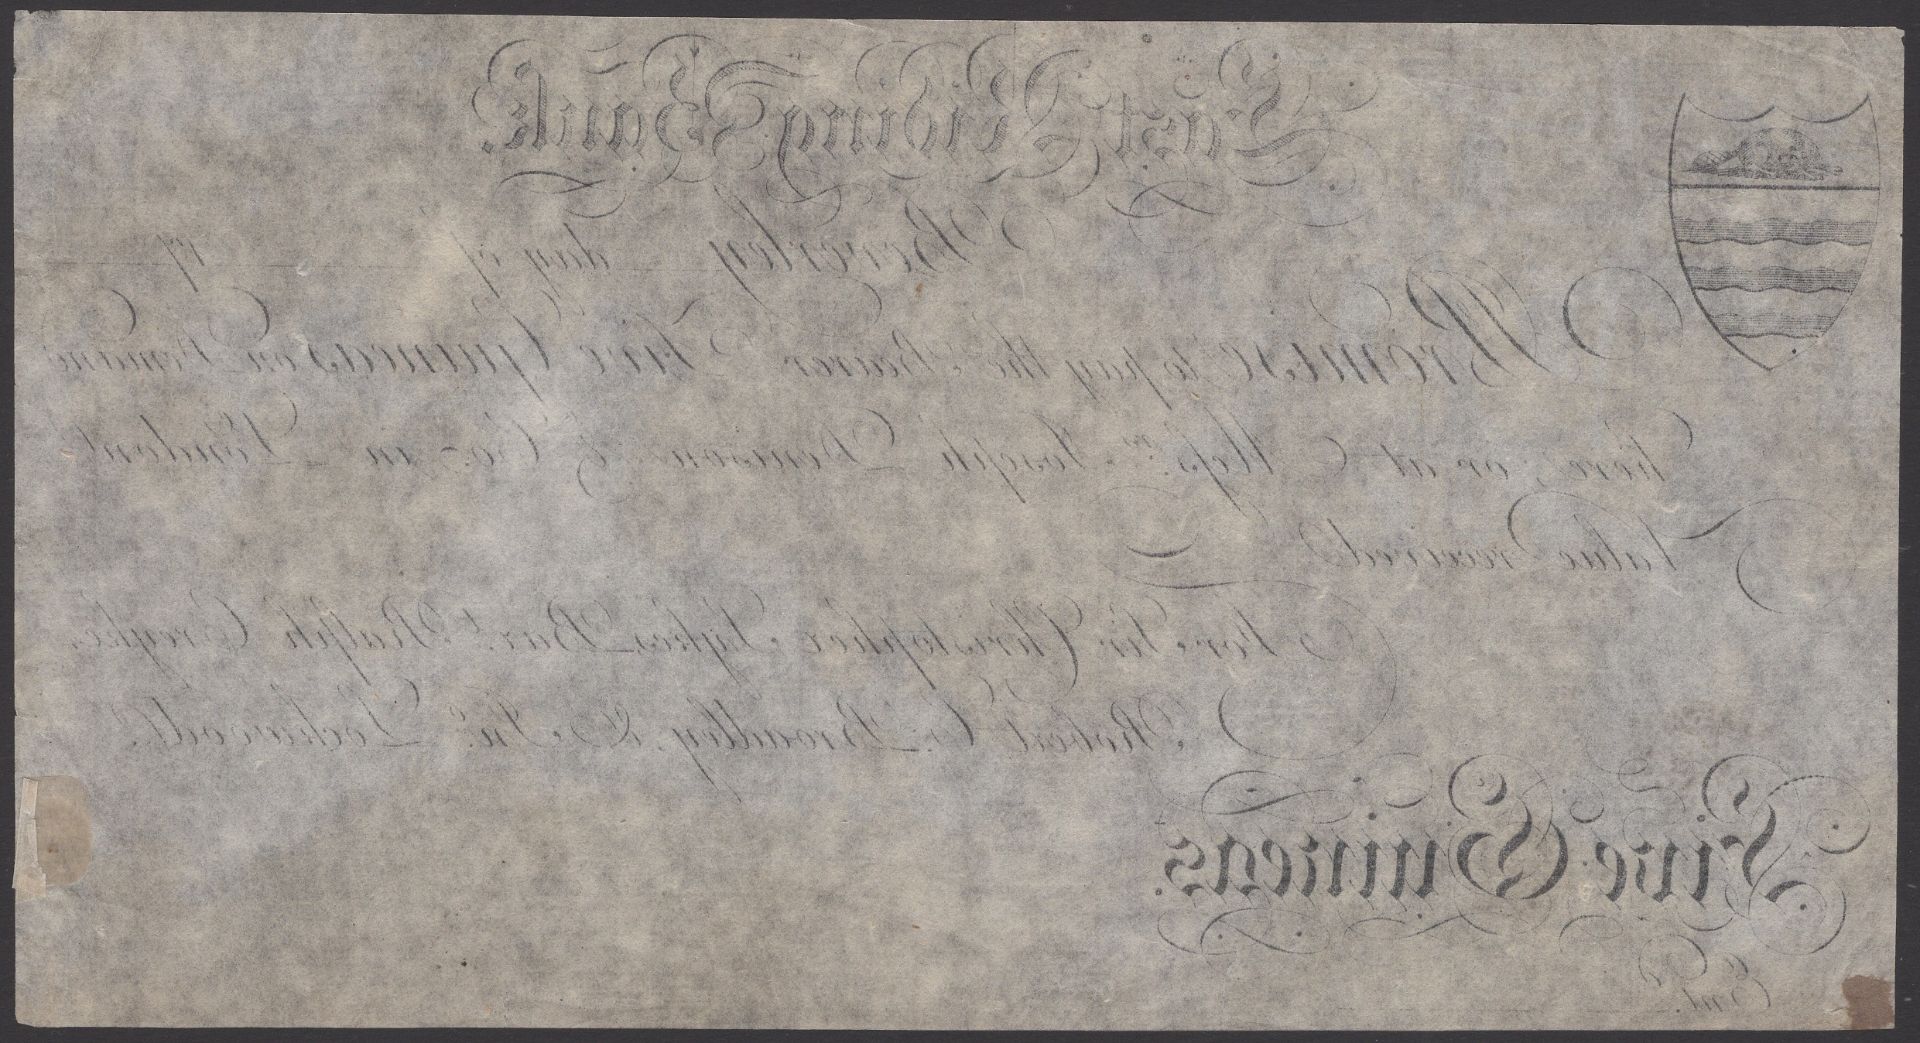 East Riding Bank.
Beverley day of 17
Promise to pay the Bearer Five Guineas on Demand
here, or at Messrs. Joseph Denison & Co. in London
Value received
For Sir Christopher Sykes Bart. Ralph Creyke,
Robert C. Broadley & Jno. Lockwood.
Five Guineas.
Entd.